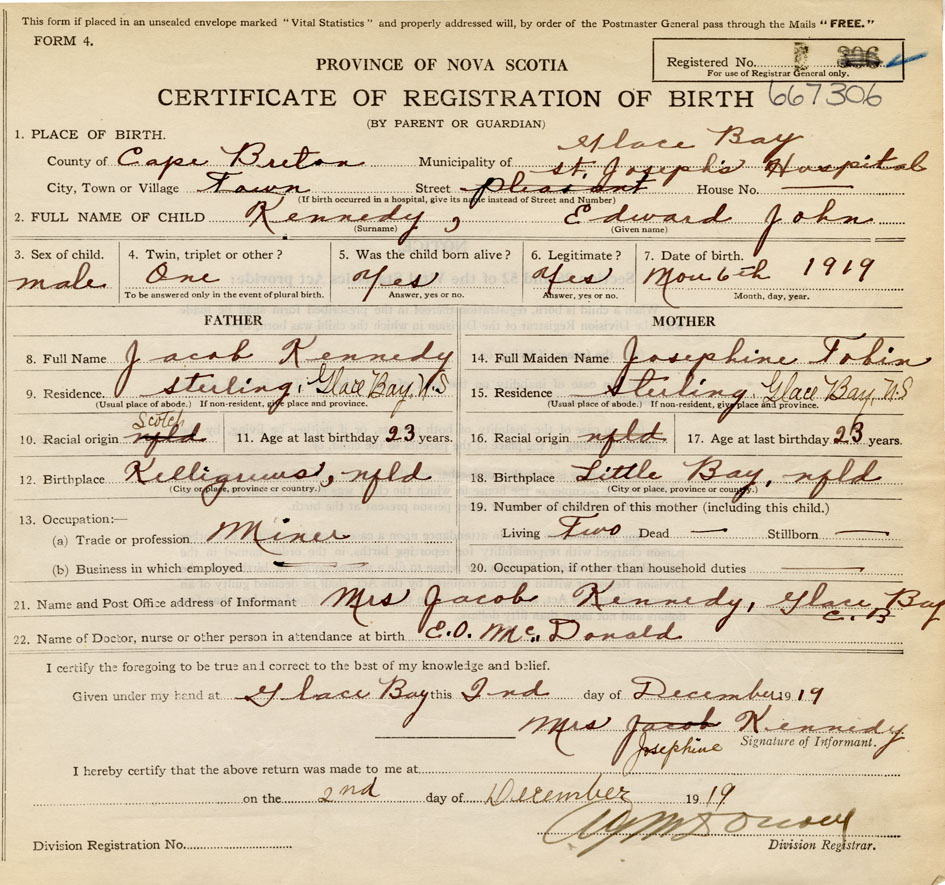 This form if placed in an unsealed envelope marked "Vital Statistics" and properly addressed will, by order of the Postmaster General pass through the Mails "FREE."
FORM 4.
Registered No. 306
For use of Registrar General only.
PROVINCE OF NOVA SCOTIA
CERTIFICATE OF REGISTRATION OF BIRTH 667306
(BY PARENT OR GUARDIAN)
1. PLACE OF BIRTH.
Glace Bay
County of Cape Breton Municipality of St. Joseph's Hospital
City, Town or Village Town Street Pleasant House No. —
(If birth occurred in a hospital, give its name instead of Street and Number)
2. FULL NAME OF CHILD Kennedy, Edward John
(Surname) (Given name)
3. Sex of child. 4. Twin, triplet or other? 5. Was the child born alive? 6. Legitimate? 7. Date of birth.
male One Yes Yes Nov 6th 1919
To be answered only in the event of plural birth. Answer, yes or no. Answer, yes or no. Month, day, year.
FATHER MOTHER
8. Full Name Jacob Kennedy 14. Full Maiden Name Josephine Tobin
9. Residence. Sterling, Glace Bay, N.S 15. Residence Sterling Glace Bay, N.S
(Usual place of abode.) If non-resident, give place and province. (Usual place of abode.) If non-resident, give place and province.
Scotch
10. Racial origin nfld 11. Age at last birthday 23 years. 16. Racial origin nfld 17. Age at last birthday 23 years.
12. Birthplace Kelligrews, nfld 18. Birthplace Little Bay, nfld
(City or place, province or country.) (City or place, province or country.)
13. Occupation:— 19. Number of children of this mother (including this child.)
(a) Trade or profession Miner Living Two Dead — Stillborn —
(b) Business in which employed — 20. Occupation, if other than household duties —
21. Name and Post Office address of Informant Mrs Jacob Kennedy, Glace Bay
C. B
22. Name of Doctor, nurse or other person in attendance at birth E.O. McDonald
I certify the foregoing to be true and correct to the best of my knowledge and belief.
Given under my hand at Glace Bay this 2nd day of December 1919
Mrs Jacob Kennedy
Josephine Signature of Informant.
I hereby certify that the above return was made to me at
on the 2nd day of December 1919
Division Registration No. Division Registrar.